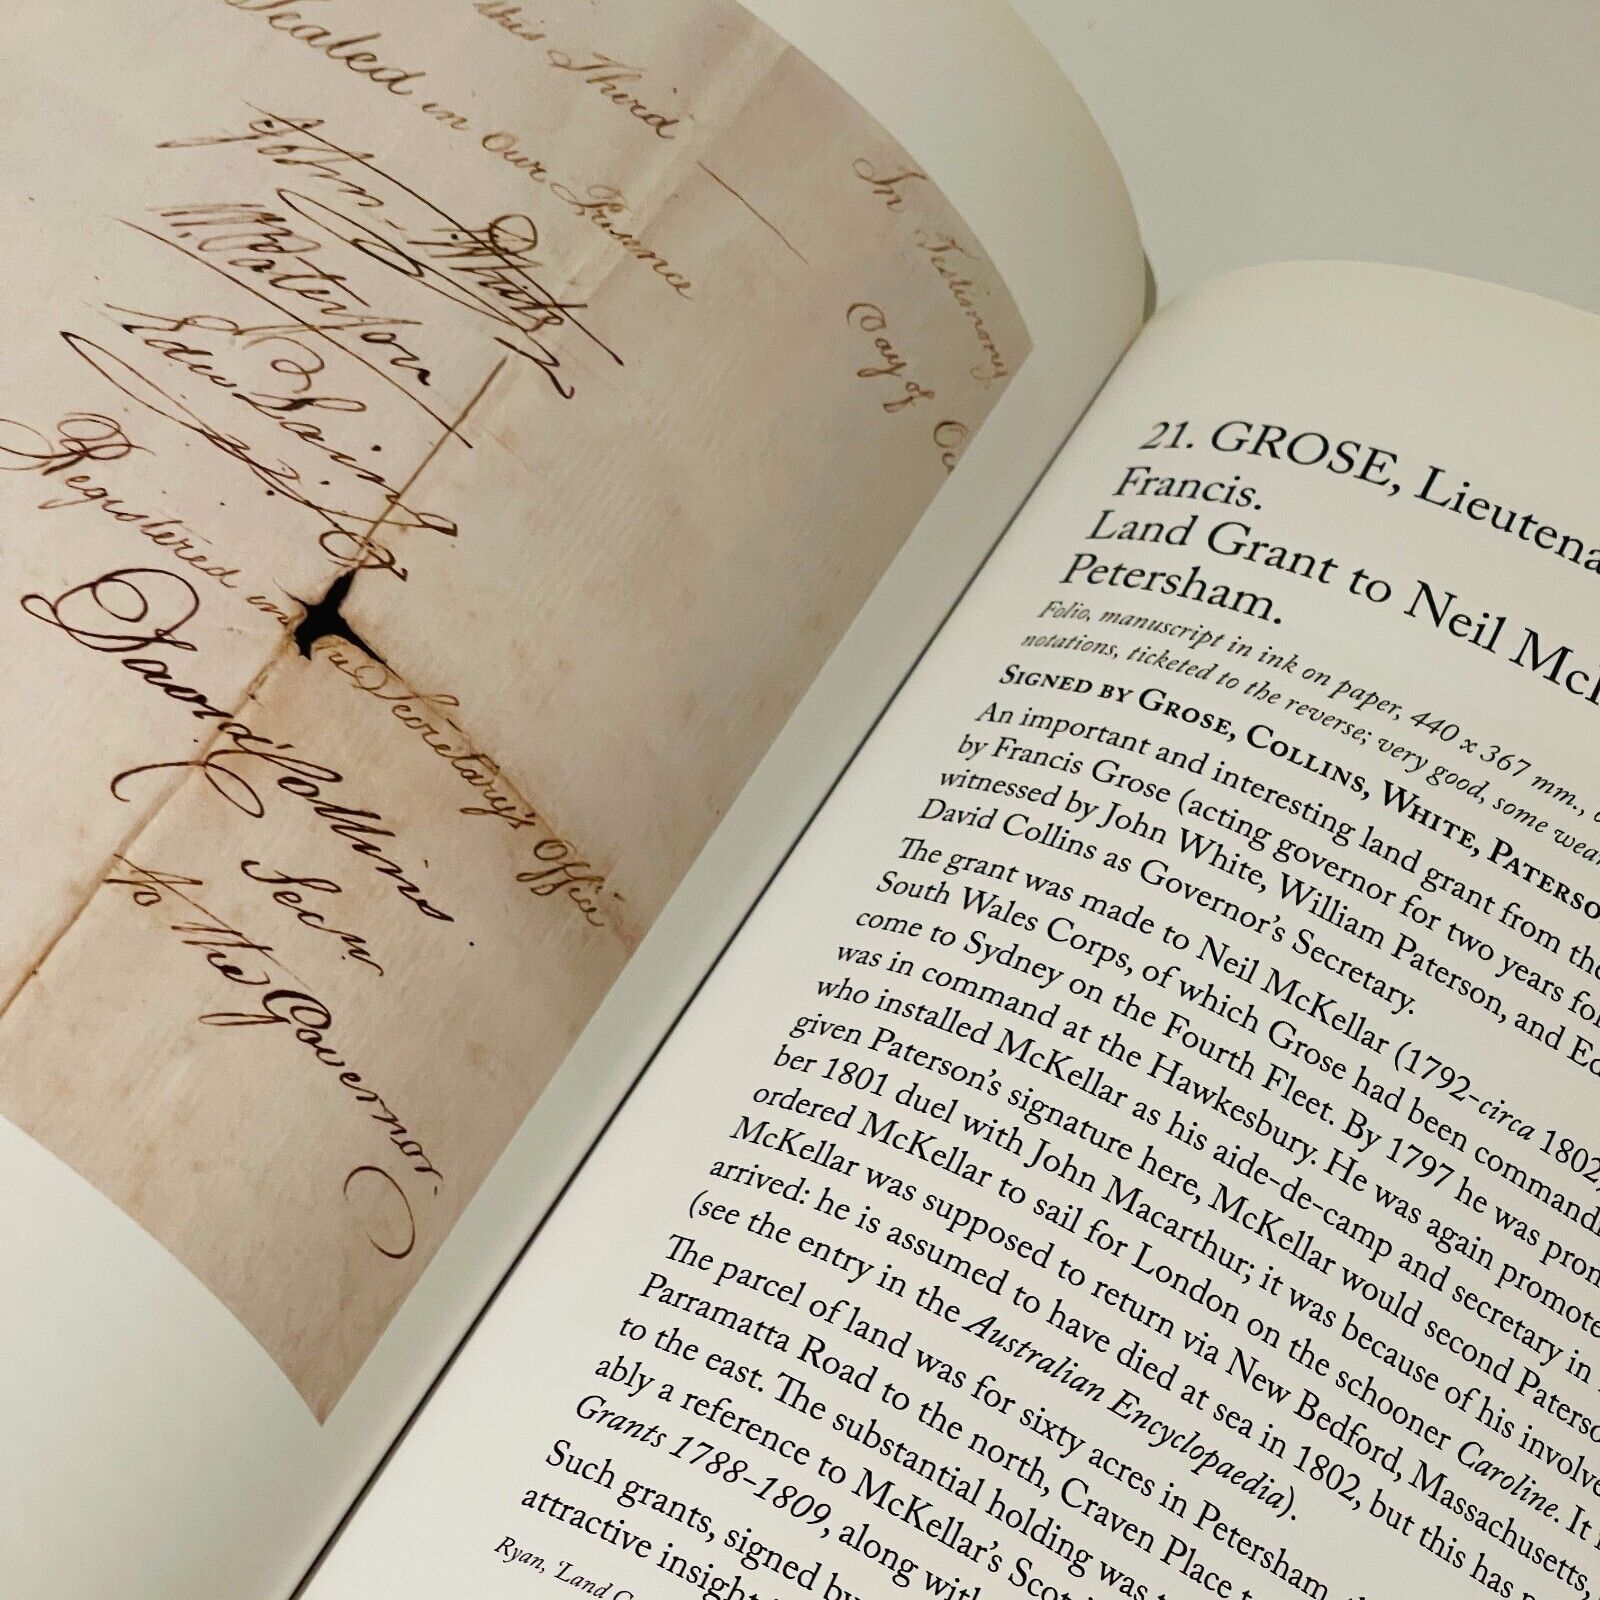 this Third
Sealed in Our Presence
John White
W. Paterson
Edw Laing
Registered in the Secretary's Office
David Collins
Secry
to The Governor.
In Testimony
Day of
21. GROSE, Lieutena
Francis.
Land Grant to Neil McK
Petersham.
Folio, manuscript in ink on paper, 440 x 367 mm.,
notations, ticketed to the reverse; very good, some wear
SIGNED BY GROSE, COLLINS, WHITE, PATERSO
An important and interesting land grant from the
by Francis Grose (acting governor for two years fol
witnessed by John White, William Paterson, and Ed
David Collins as Governor's Secretary.
The grant was made to Neil McKellar (1792-circa 1802,
South Wales Corps, of which Grose had been commandi
come to Sydney on the Fourth Fleet. By 1797 he was prom
was in command at the Hawkesbury. He was again promote
who installed McKellar as his aide-de-camp and secretary in
given Paterson's signature here, McKellar would second Paterso
ber 1801 duel with John Macarthur; it was because of his involve
ordered McKellar to sail for London on the schooner Caroline. It
McKellar was supposed to return via New Bedford, Massachusetts,
arrived: he is assumed to have died at sea in 1802, but this has n
(see the entry in the Australian Encyclopaedia).
The parcel of land was for sixty acres in Petersham,
Parramatta Road to the north, Craven Place t
to the east. The substantial holding was
ably a reference to McKellar's Scot
Grants 1788-1809, along with
Such grants, signed by
attractive insight
Ryan, 'Land G